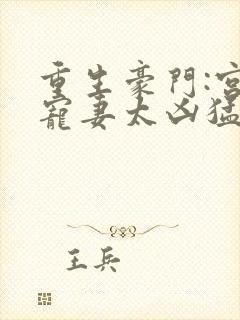 重生豪門:宮
寵妻太凶猛
王兵